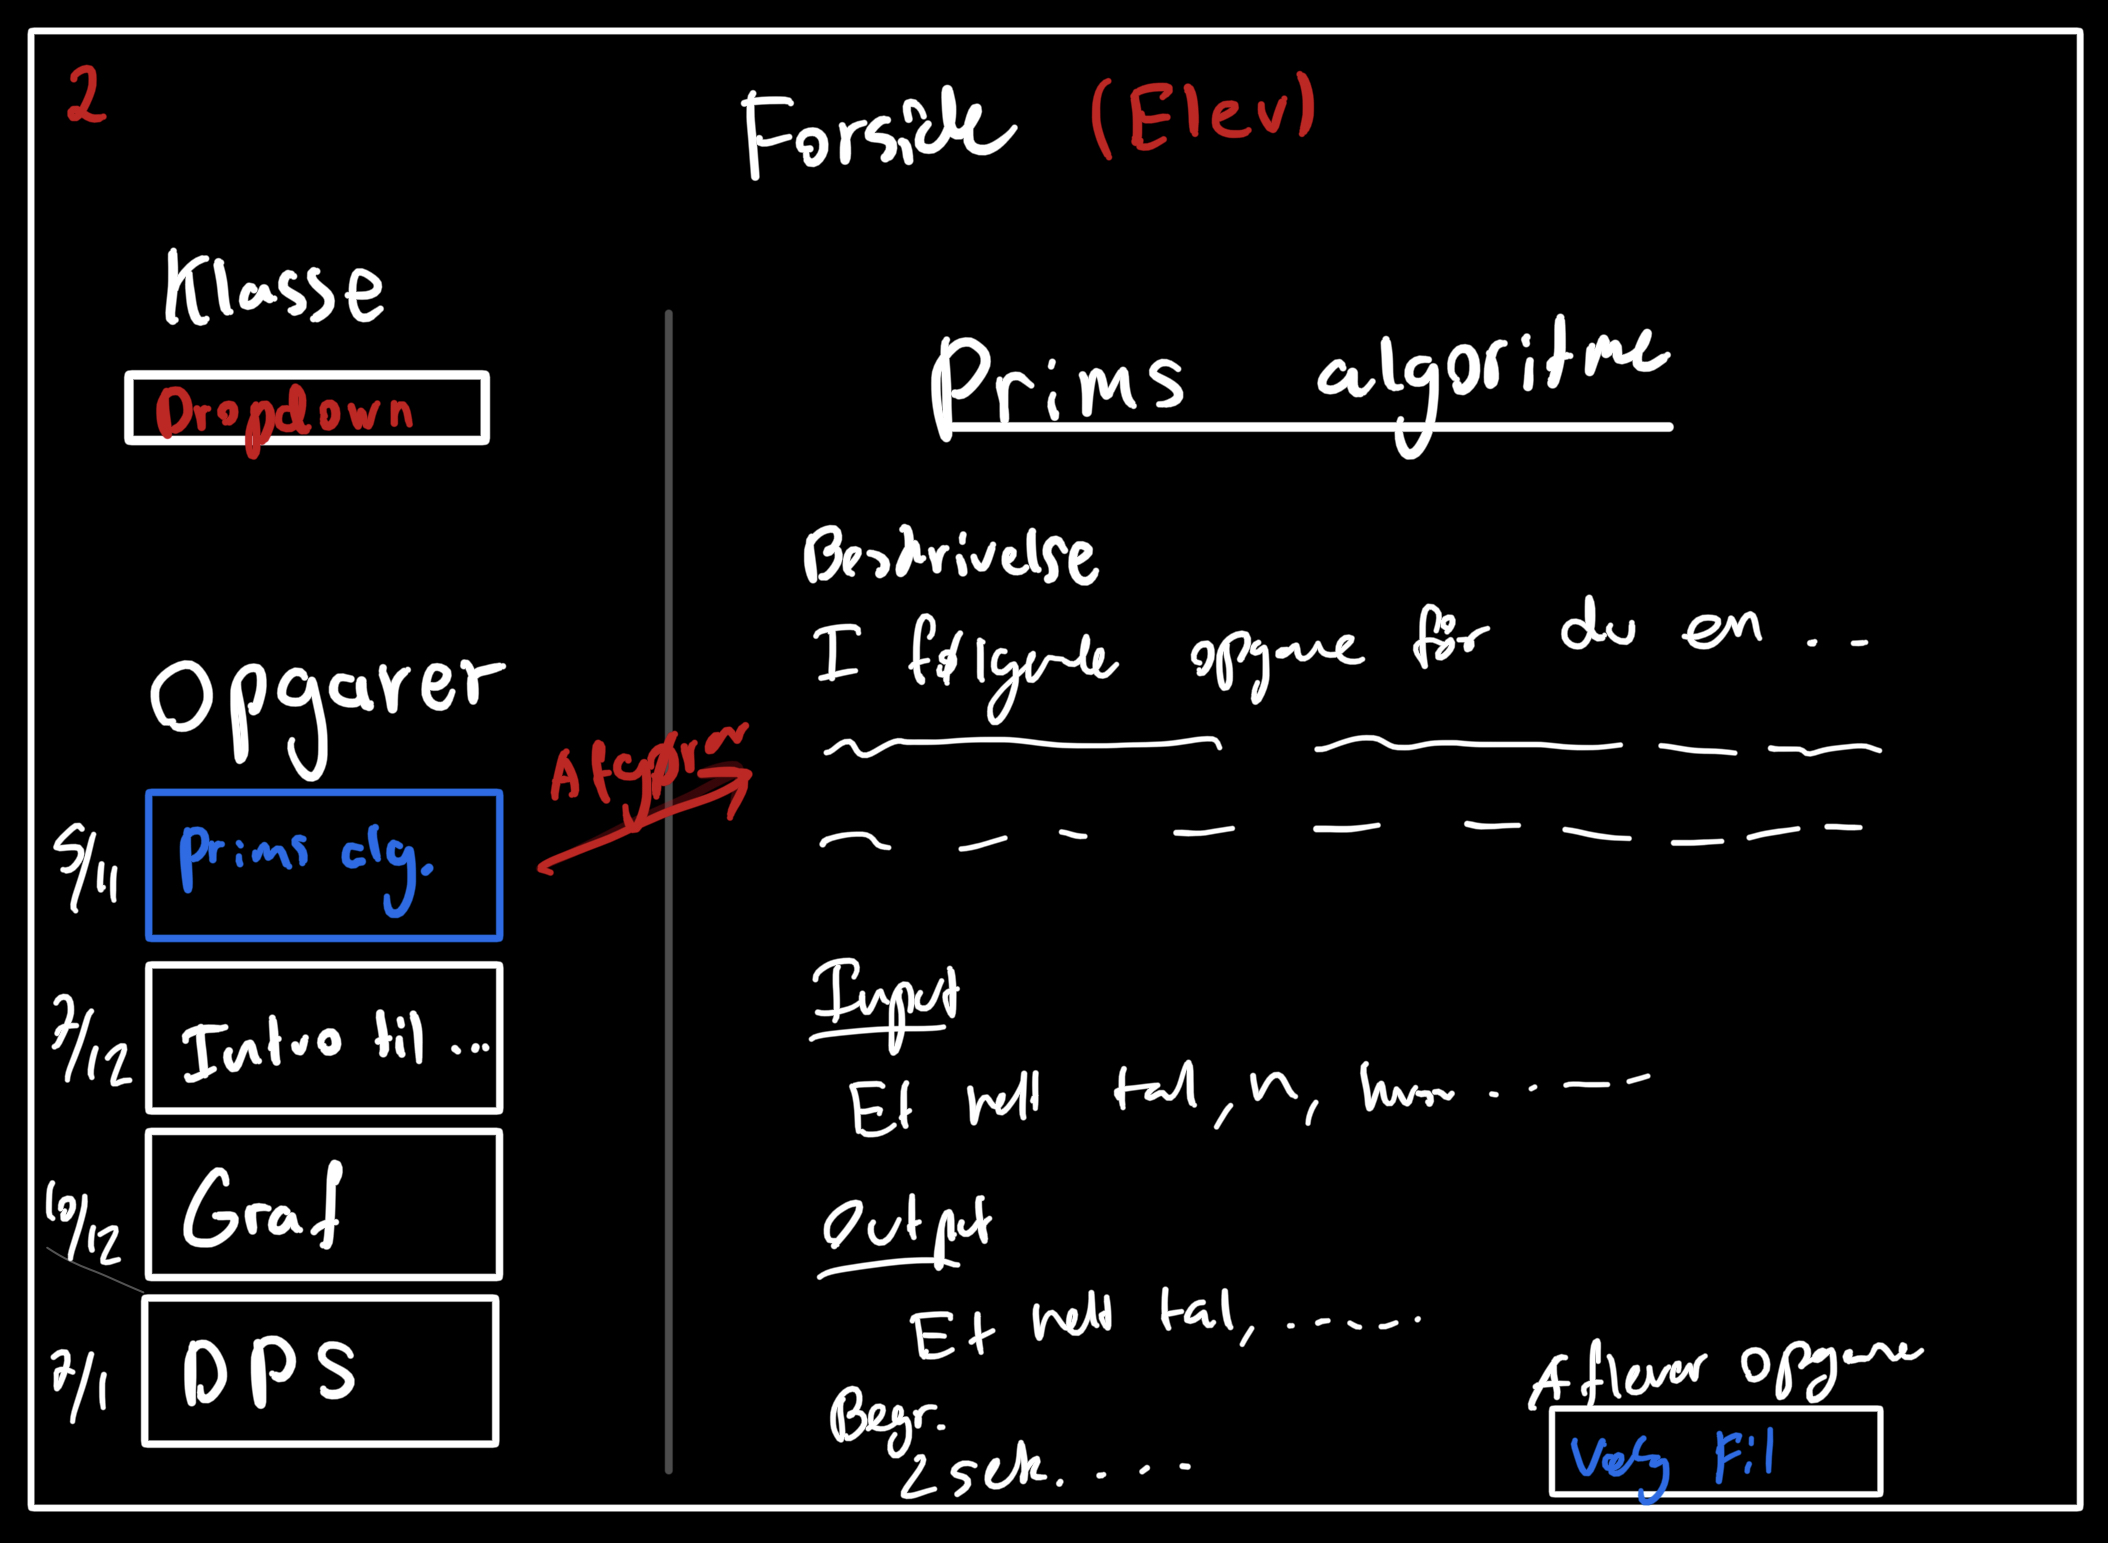 2
Forside (Elev)
Klasse
Dropdown
Opgaver
5/11 Prims alg.
7/12 Intro til ...
10/12 Graf
7/1 DPS
Afgører
Prims algoritme
Beskrivelse
I følgende opgave får du en . . -
Input
Et helt tal, n, hvor . . - -
Output
Et helt tal, . - - - - .
Begr.
2 sek. . . . .
Aflever opgave
Vælg Fil